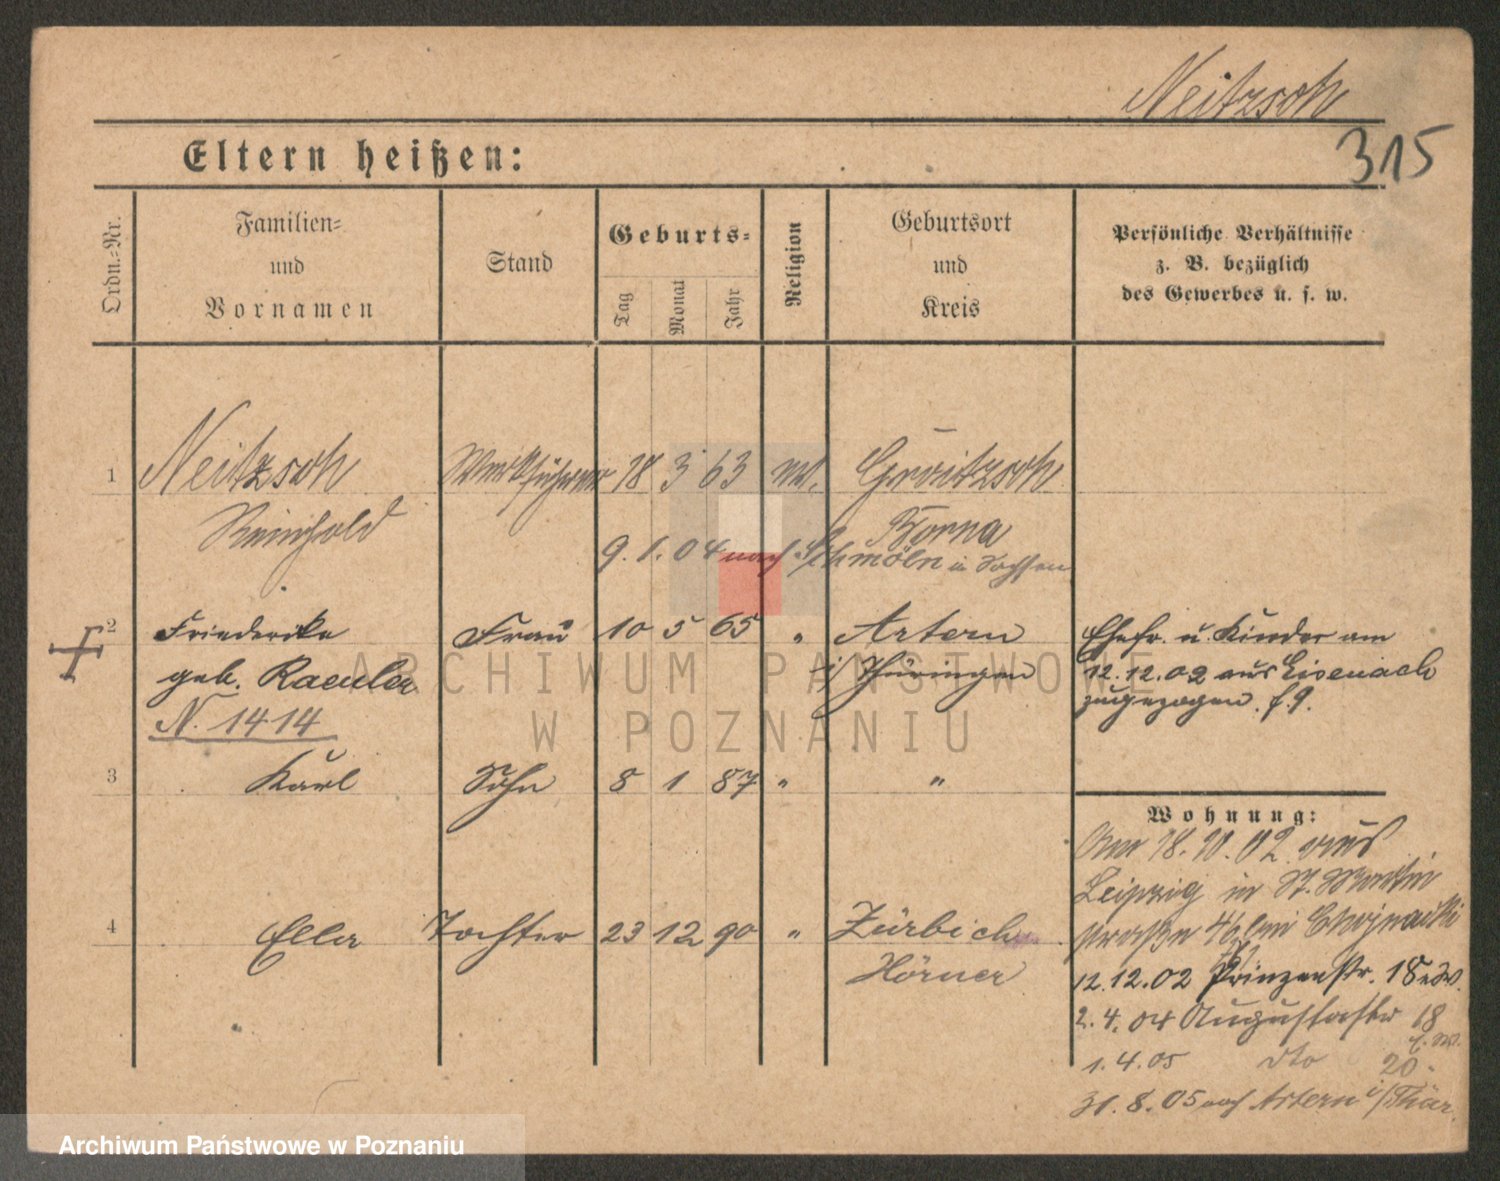 Neitzsch
315
Eltern heißen:
Ordn.-Nr.
Familien-
und
Vornamen
Stand
Geburts-
Tag
Monat
Jahr
Religion
Geburtsort
und
Kreis
Persönliche Verhältnisse
z. B. bezüglich
des Gewerbes u. s. w.
1 Neitzsch Werkführer 18 3 63 Groitzsch
Reinhold Borna
9. 1. 04 nach Schmölln in Sachsen
2 Friederike Frau 10 5 65 " Artern Ehefr. u. Kinder am
geb. Raeuler i/Thüringen 12.12.02 aus Eisenach
N. 1414 zugezogen.
3 Karl Sohn 8 1 87 " "
Wohnung:
Am 18.10.02 aus
Leipzig in St. Martin
4 Ella Tochter 23 12 90 " Zürbich straße bei
Hörner 12.12.02 Prinzenstr. 18
2.4.04 Augustastr 18
1.4.05 dto 20
31.8.05 nach Artern i/Thür.
ARCHIWUM PAŃSTWOWE
W POZNANIU
Archiwum Państwowe w Poznaniu